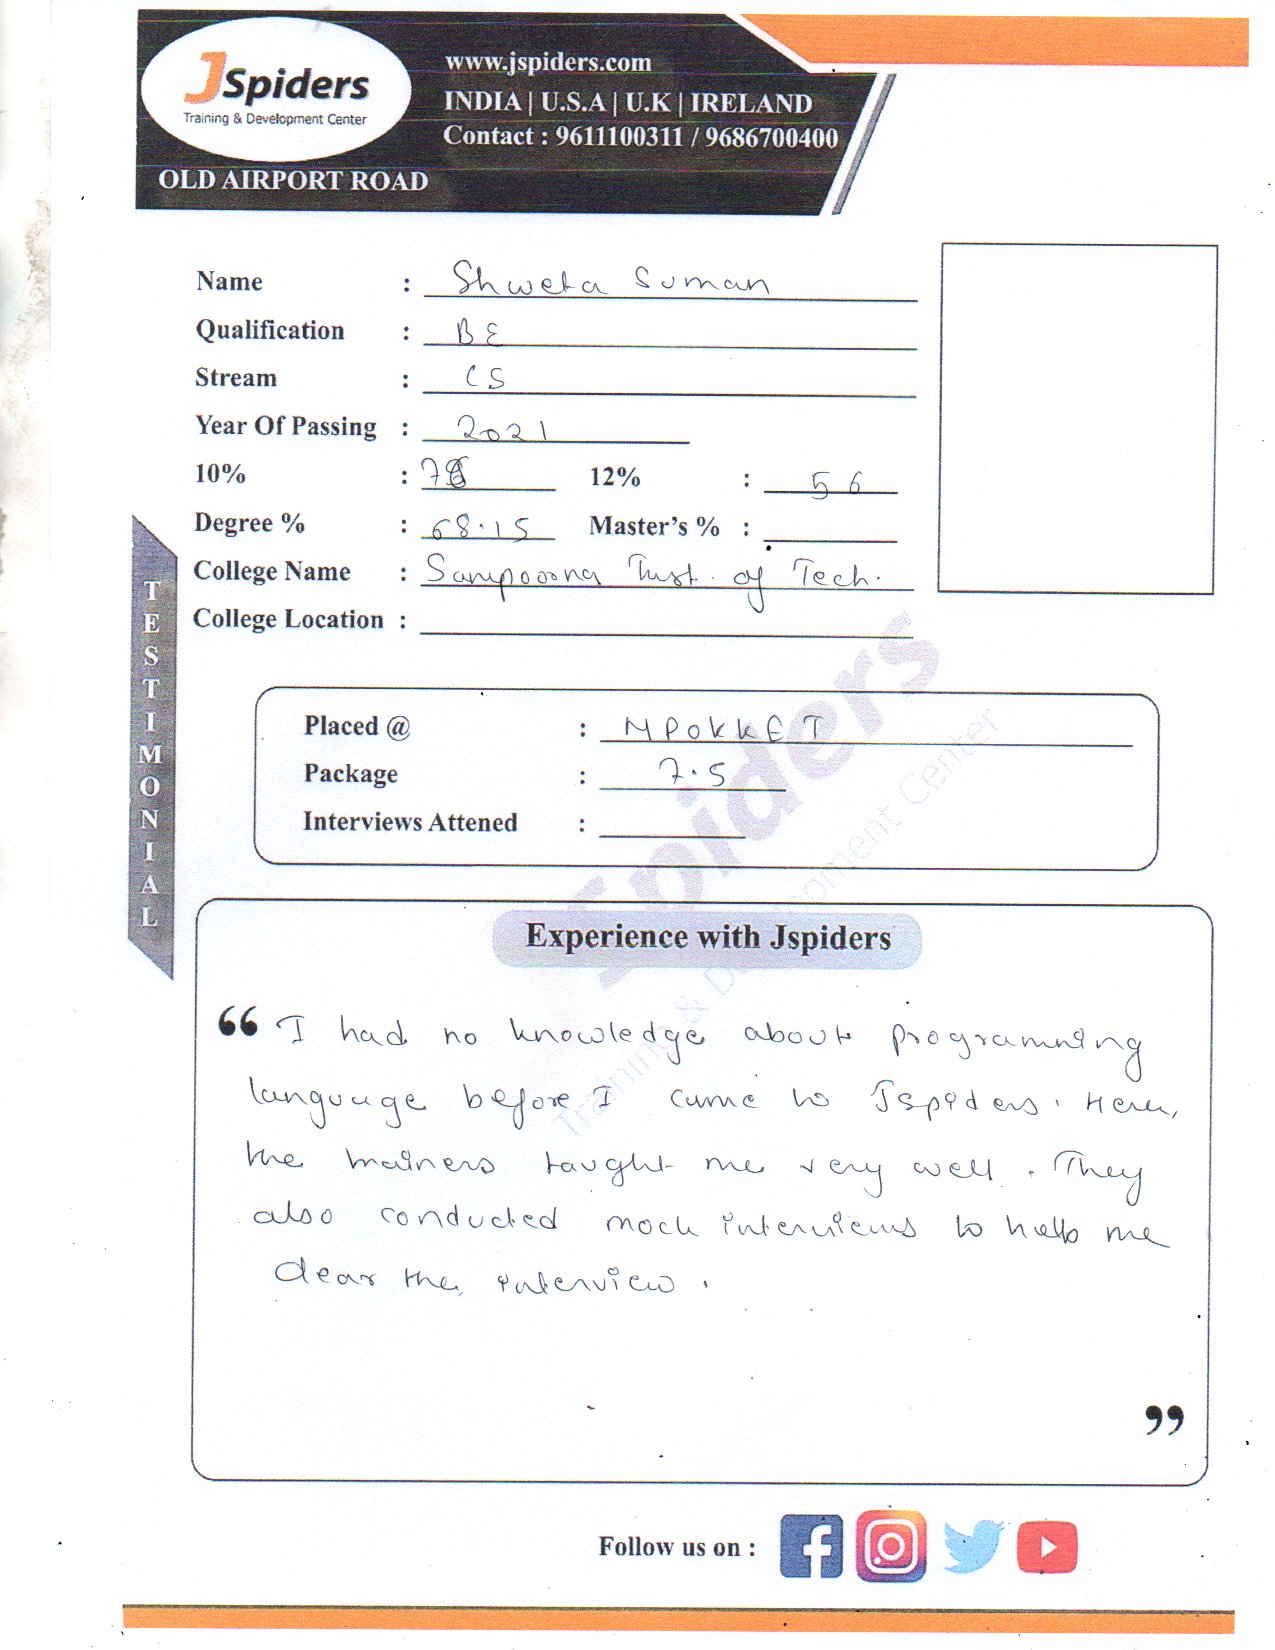 JSpiders
Training & Development Center
OLD AIRPORT ROAD
www.jspiders.com
INDIA | U.S.A | U.K | IRELAND
Contact : 9611100311 / 9686700400
Name : Shweta Suman
Qualification : BE
Stream : CS
Year Of Passing : 2021
10% : 12% : 56
Degree % : 68.15 Master's % :
College Name : Sampoorna Inst. of Tech.
College Location :
TESTIMONIAL
Placed @ : MPOKKET
Package : 7.5
Interviews Attened :
Spiders
Training & Development Center
Experience with Jspiders
“ I had no knowledge about programming
language before I came to Jspiders. Here,
the trainers taught me very well. They
also conducted mock interviews to help me
clear the interview.
”
Follow us on :